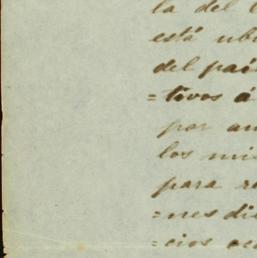 la del
está ubi
del paí
=tivos á
por an
los mis
para re
=nes di
=cios oca